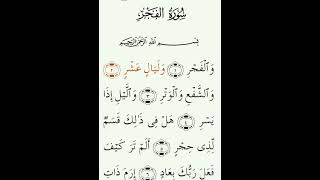 سُورَةُ الفَجْرِ
بِسْمِ اللَّهِ الرَّحْمَٰنِ الرَّحِيمِ
وَالْفَجْرِ ﴿١﴾ وَلَيَالٍ عَشْرٍ ﴿٢﴾
وَالشَّفْعِ وَالْوَتْرِ ﴿٣﴾ وَالَّيْلِ إِذَا
يَسْرِ ﴿٤﴾ هَلْ فِى ذَٰلِكَ قَسَمٌ
لِّذِى حِجْرٍ ﴿٥﴾ أَلَمْ تَرَ كَيْفَ
فَعَلَ رَبُّكَ بِعَادٍ ﴿٦﴾ إِرَمَ ذَاتِ